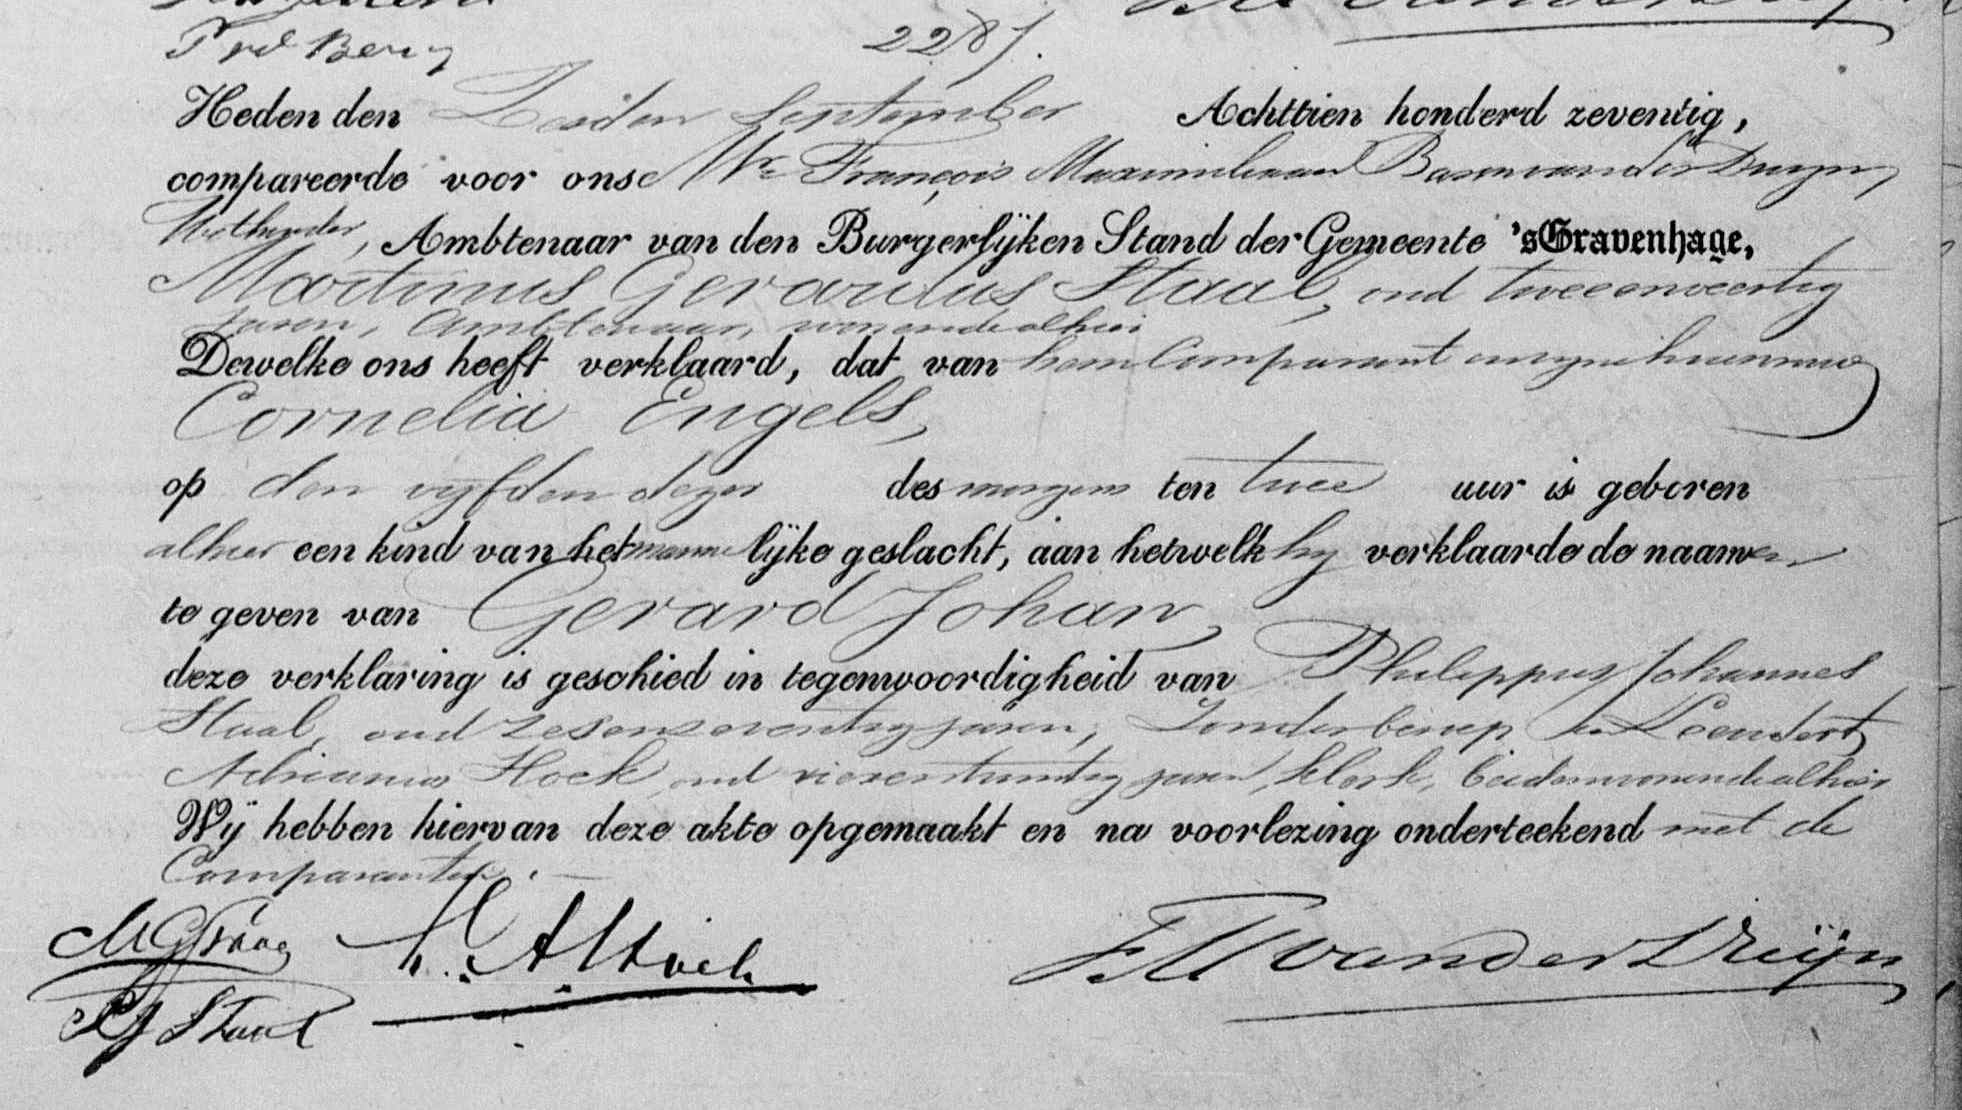 Fred Berg
2287.
Heden den Zesden September Achttien honderd zeventig,
compareerde voor ons Mr François Maximiliaan Baron van der Duyn,
Wethouder, Ambtenaar van den Burgerlijken Stand der Gemeente 'sGravenhage,
Martinus Gerardus Staal, oud tweeenveertig
jaren, Ambtenaar, wonende alhier
Dewelke ons heeft verklaard, dat van hem Comparant en zijne huisvrouw
Cornelia Engels,
op den vijfden dezer des morgens ten twee uur is geboren
alhier een kind van het mannelijke geslacht, aan hetwelk hij verklaarde de naamen
te geven van Gerard Johan,
deze verklaring is geschied in tegenwoordigheid van Philippus Johannes
Staal, oud zesenzeventig jaren, Zonder beroep en Leendert
Adrianus Hoek, oud vierentwintig jaren, klerk, beiden wonende alhier
Wij hebben hiervan deze akte opgemaakt en na voorlezing onderteekend met de
Comparanten.
MGStaal L. A. Hoek FM van der Duijn
PJ Staal